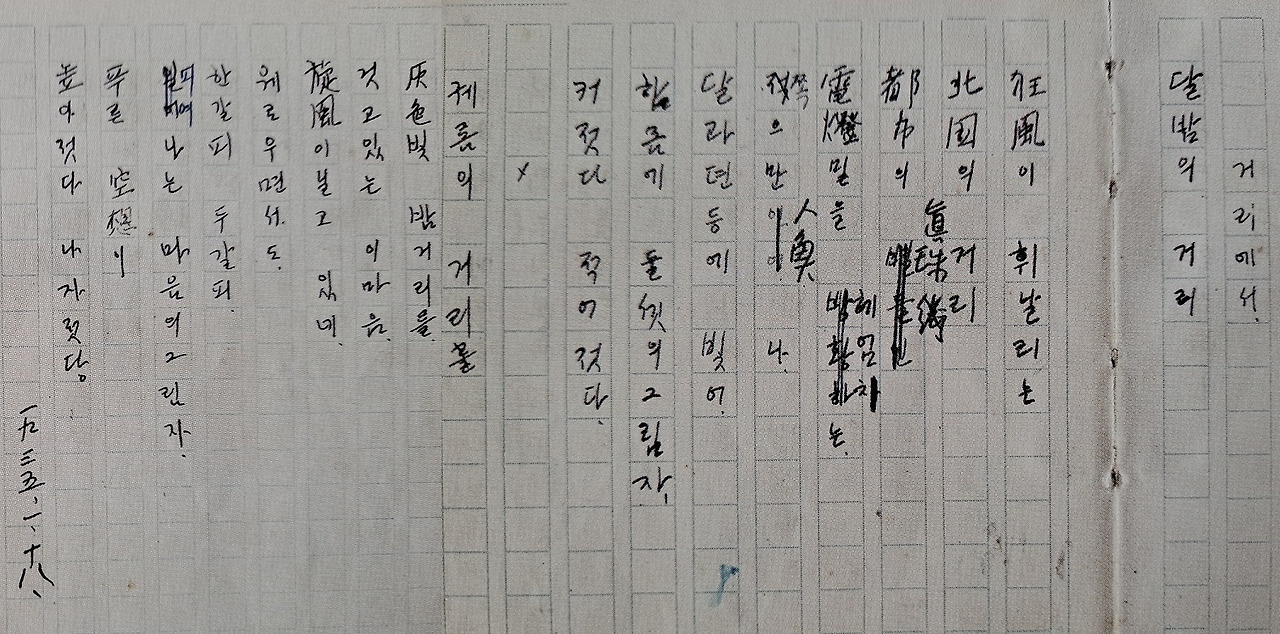 거리에서
달밤의 거리
狂風이 휘날리는
北国의 거리
都市의 眞珠
電燈밑을 헤엄치는
쪽으만 人魚 나.
달과뎐등에 빛어.
한몸에 둘셋의 그림자,
커젓다 적어젓다.
×
궤롬의 거리
灰色빛 밤거리를
것고있는 이마음.
旋風이닐고 있네.
웨로우면서도.
한갈피 두갈피.
피여나는 마음의그림자.
푸른 空想이
높아젓다 나자젓다.
一九三五, 一, 十八,